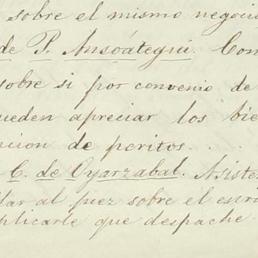 sobre el mismo negocio
de P. Ansoátegui. Con
sobre si por convenio de
ueden apreciar los bie
cion de peritos. .
C. de Oyarzabal. Asiste
lar al juez sobre el escri
plicarle que despache